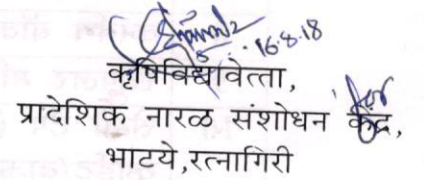 16.8.18
कृषिविद्यावेत्ता,
for
प्रादेशिक नारळ संशोधन केंद्र,
भाटये,रत्नागिरी